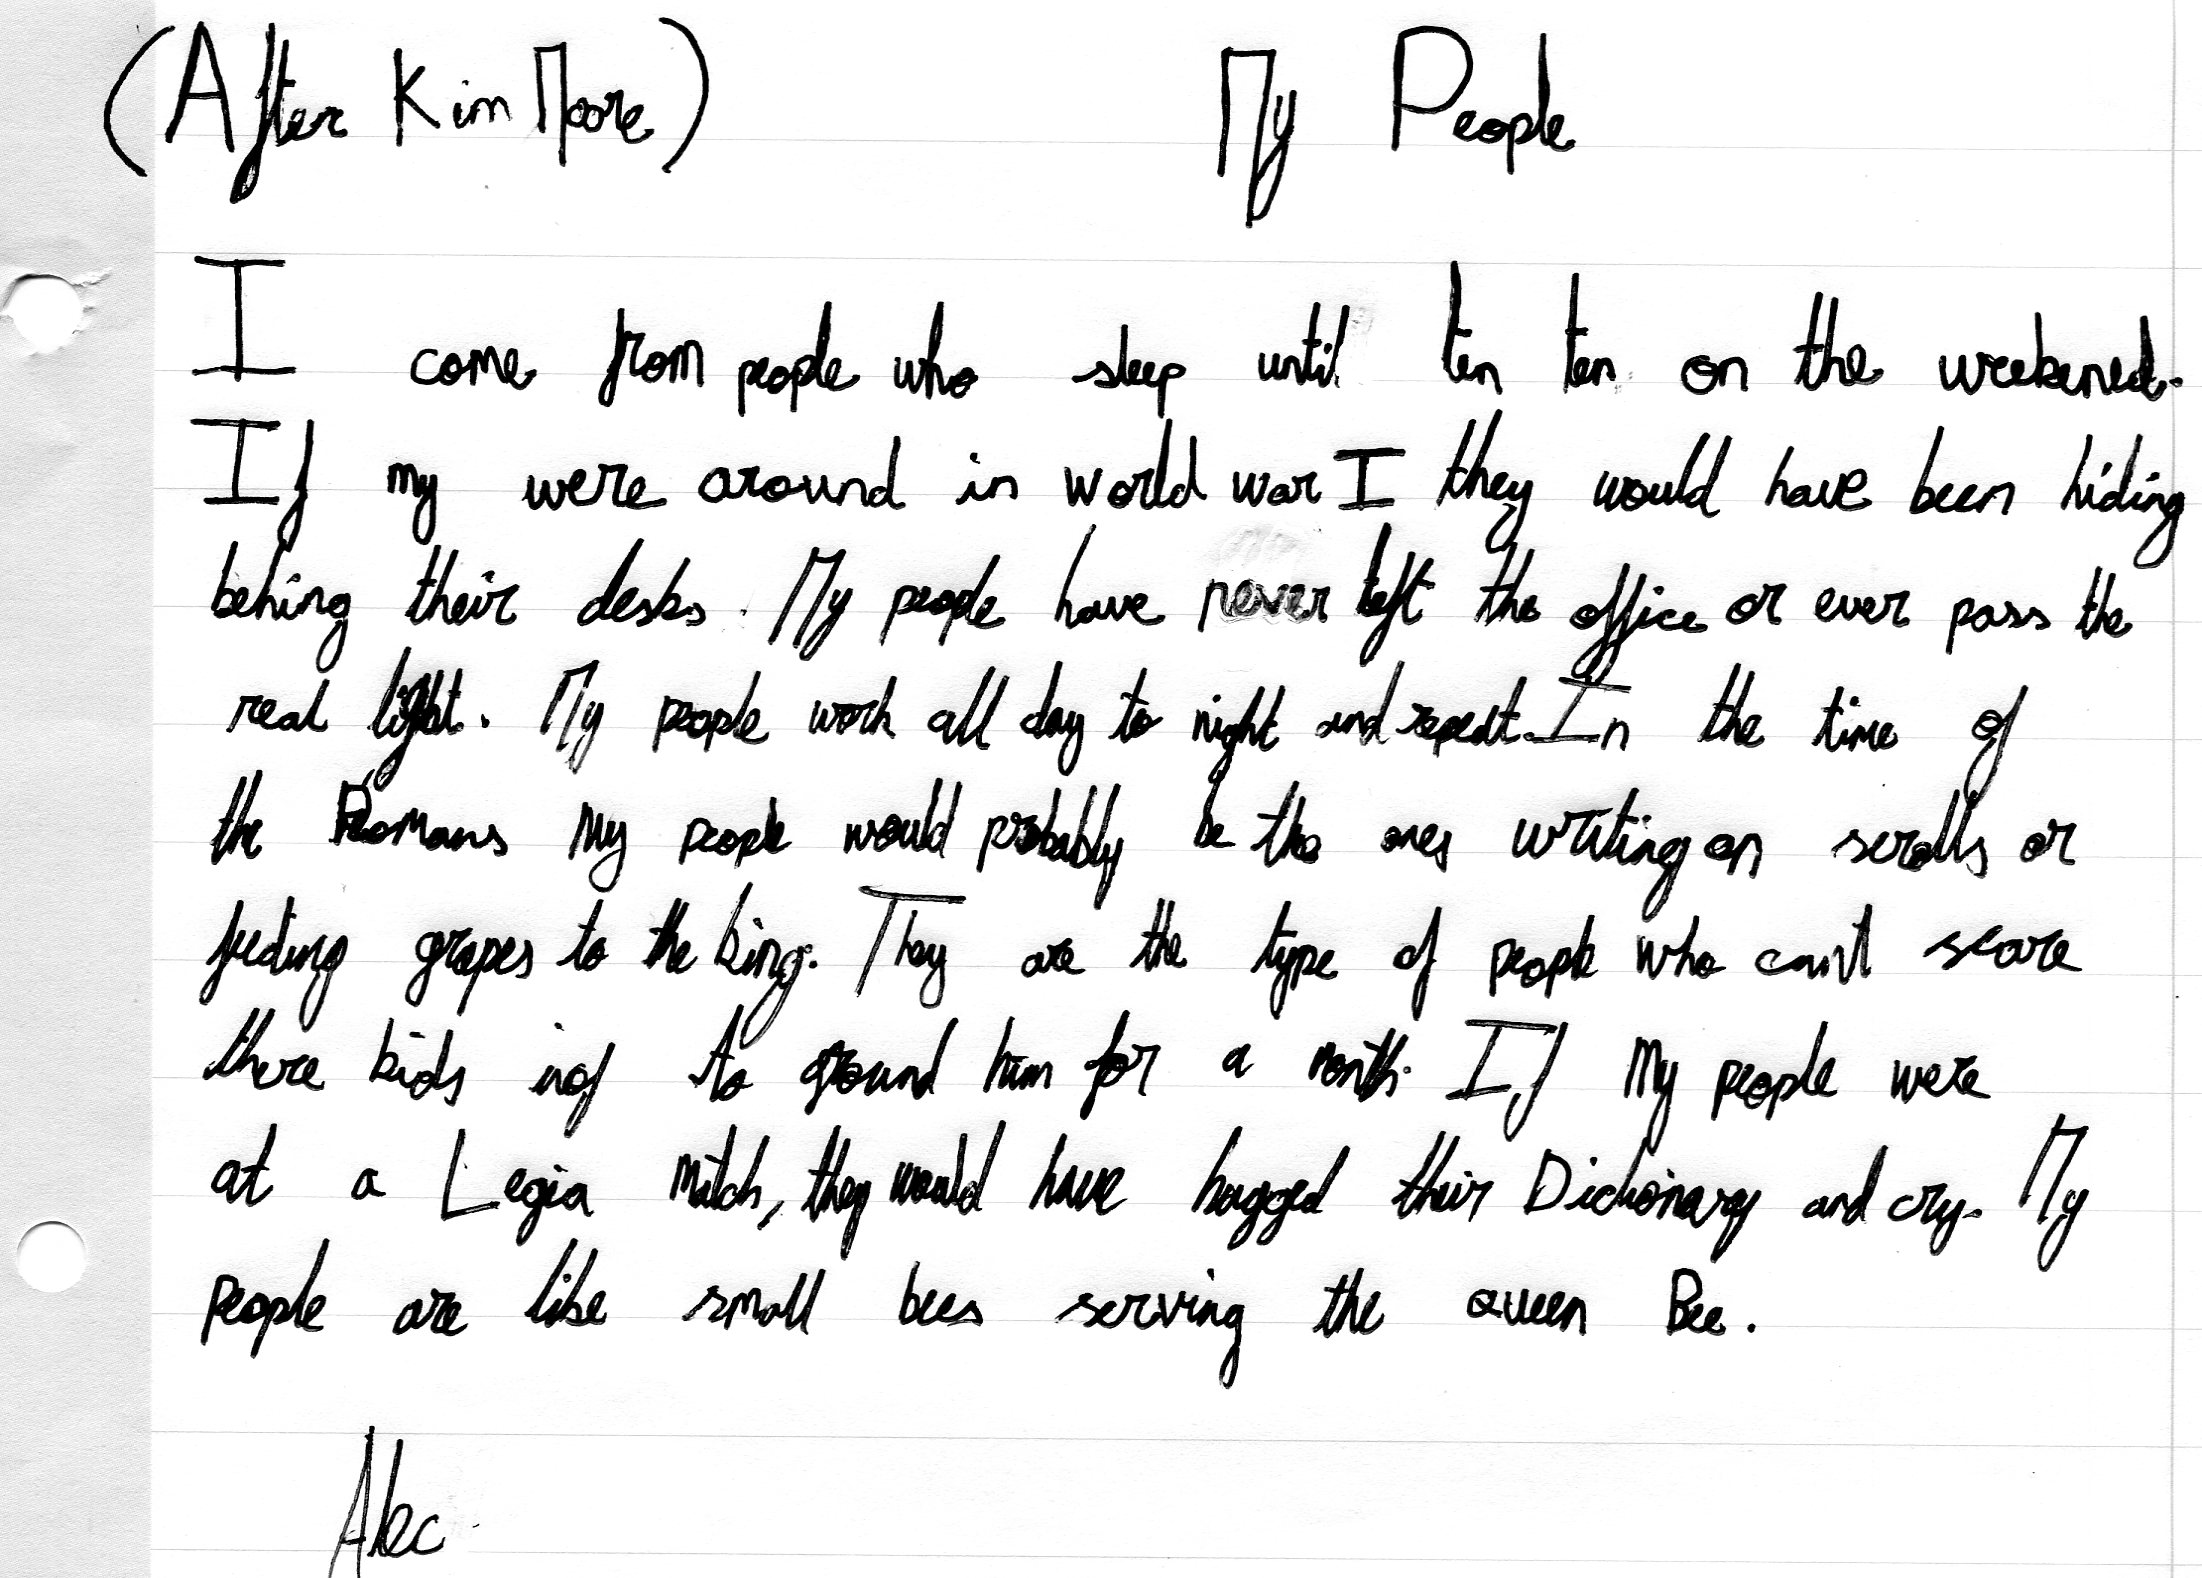 (After Kim Moore) My People
I come from people who sleep until ten ten on the weekened.
If my were around in world war I they would have been hiding
behing their desks. My people have never left the office or ever pass the
real light. My people work all day to night and repeat. In the time of
the Romans my people would probably be the ones writing on scrolls or
feeding grapes to the king. They are the type of people who can't scare
there kids to ground him for a month. If my people were
at a Legia match, they would have hugged their Dictionary and cry. My
people are like small bees serving the queen Bee.
Alec